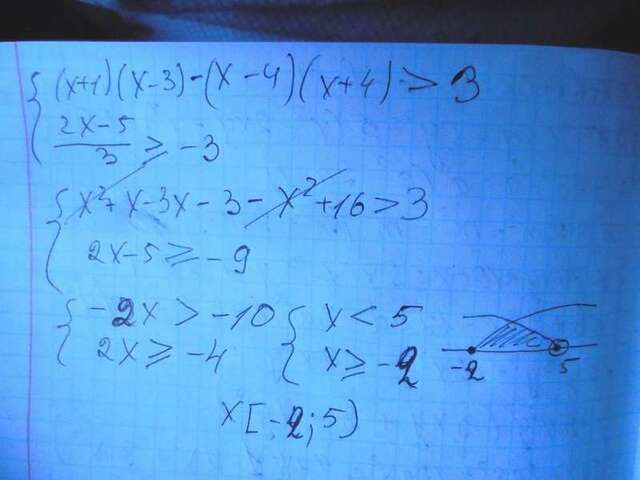 { (x+1)(x-3)-(x-4)(x+4) > 3
2x-5/3 ≥ -3
{ x²+x-3x-3-x²+16>3
2x-5 ≥ -9
{ -2x > -10 { x < 5
2x ≥ -4 x ≥ -2
-2 5
x[-2;5)